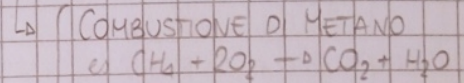 → COMBUSTIONE DI METANO
es CH4 + 2O2 → CO2 + H2O